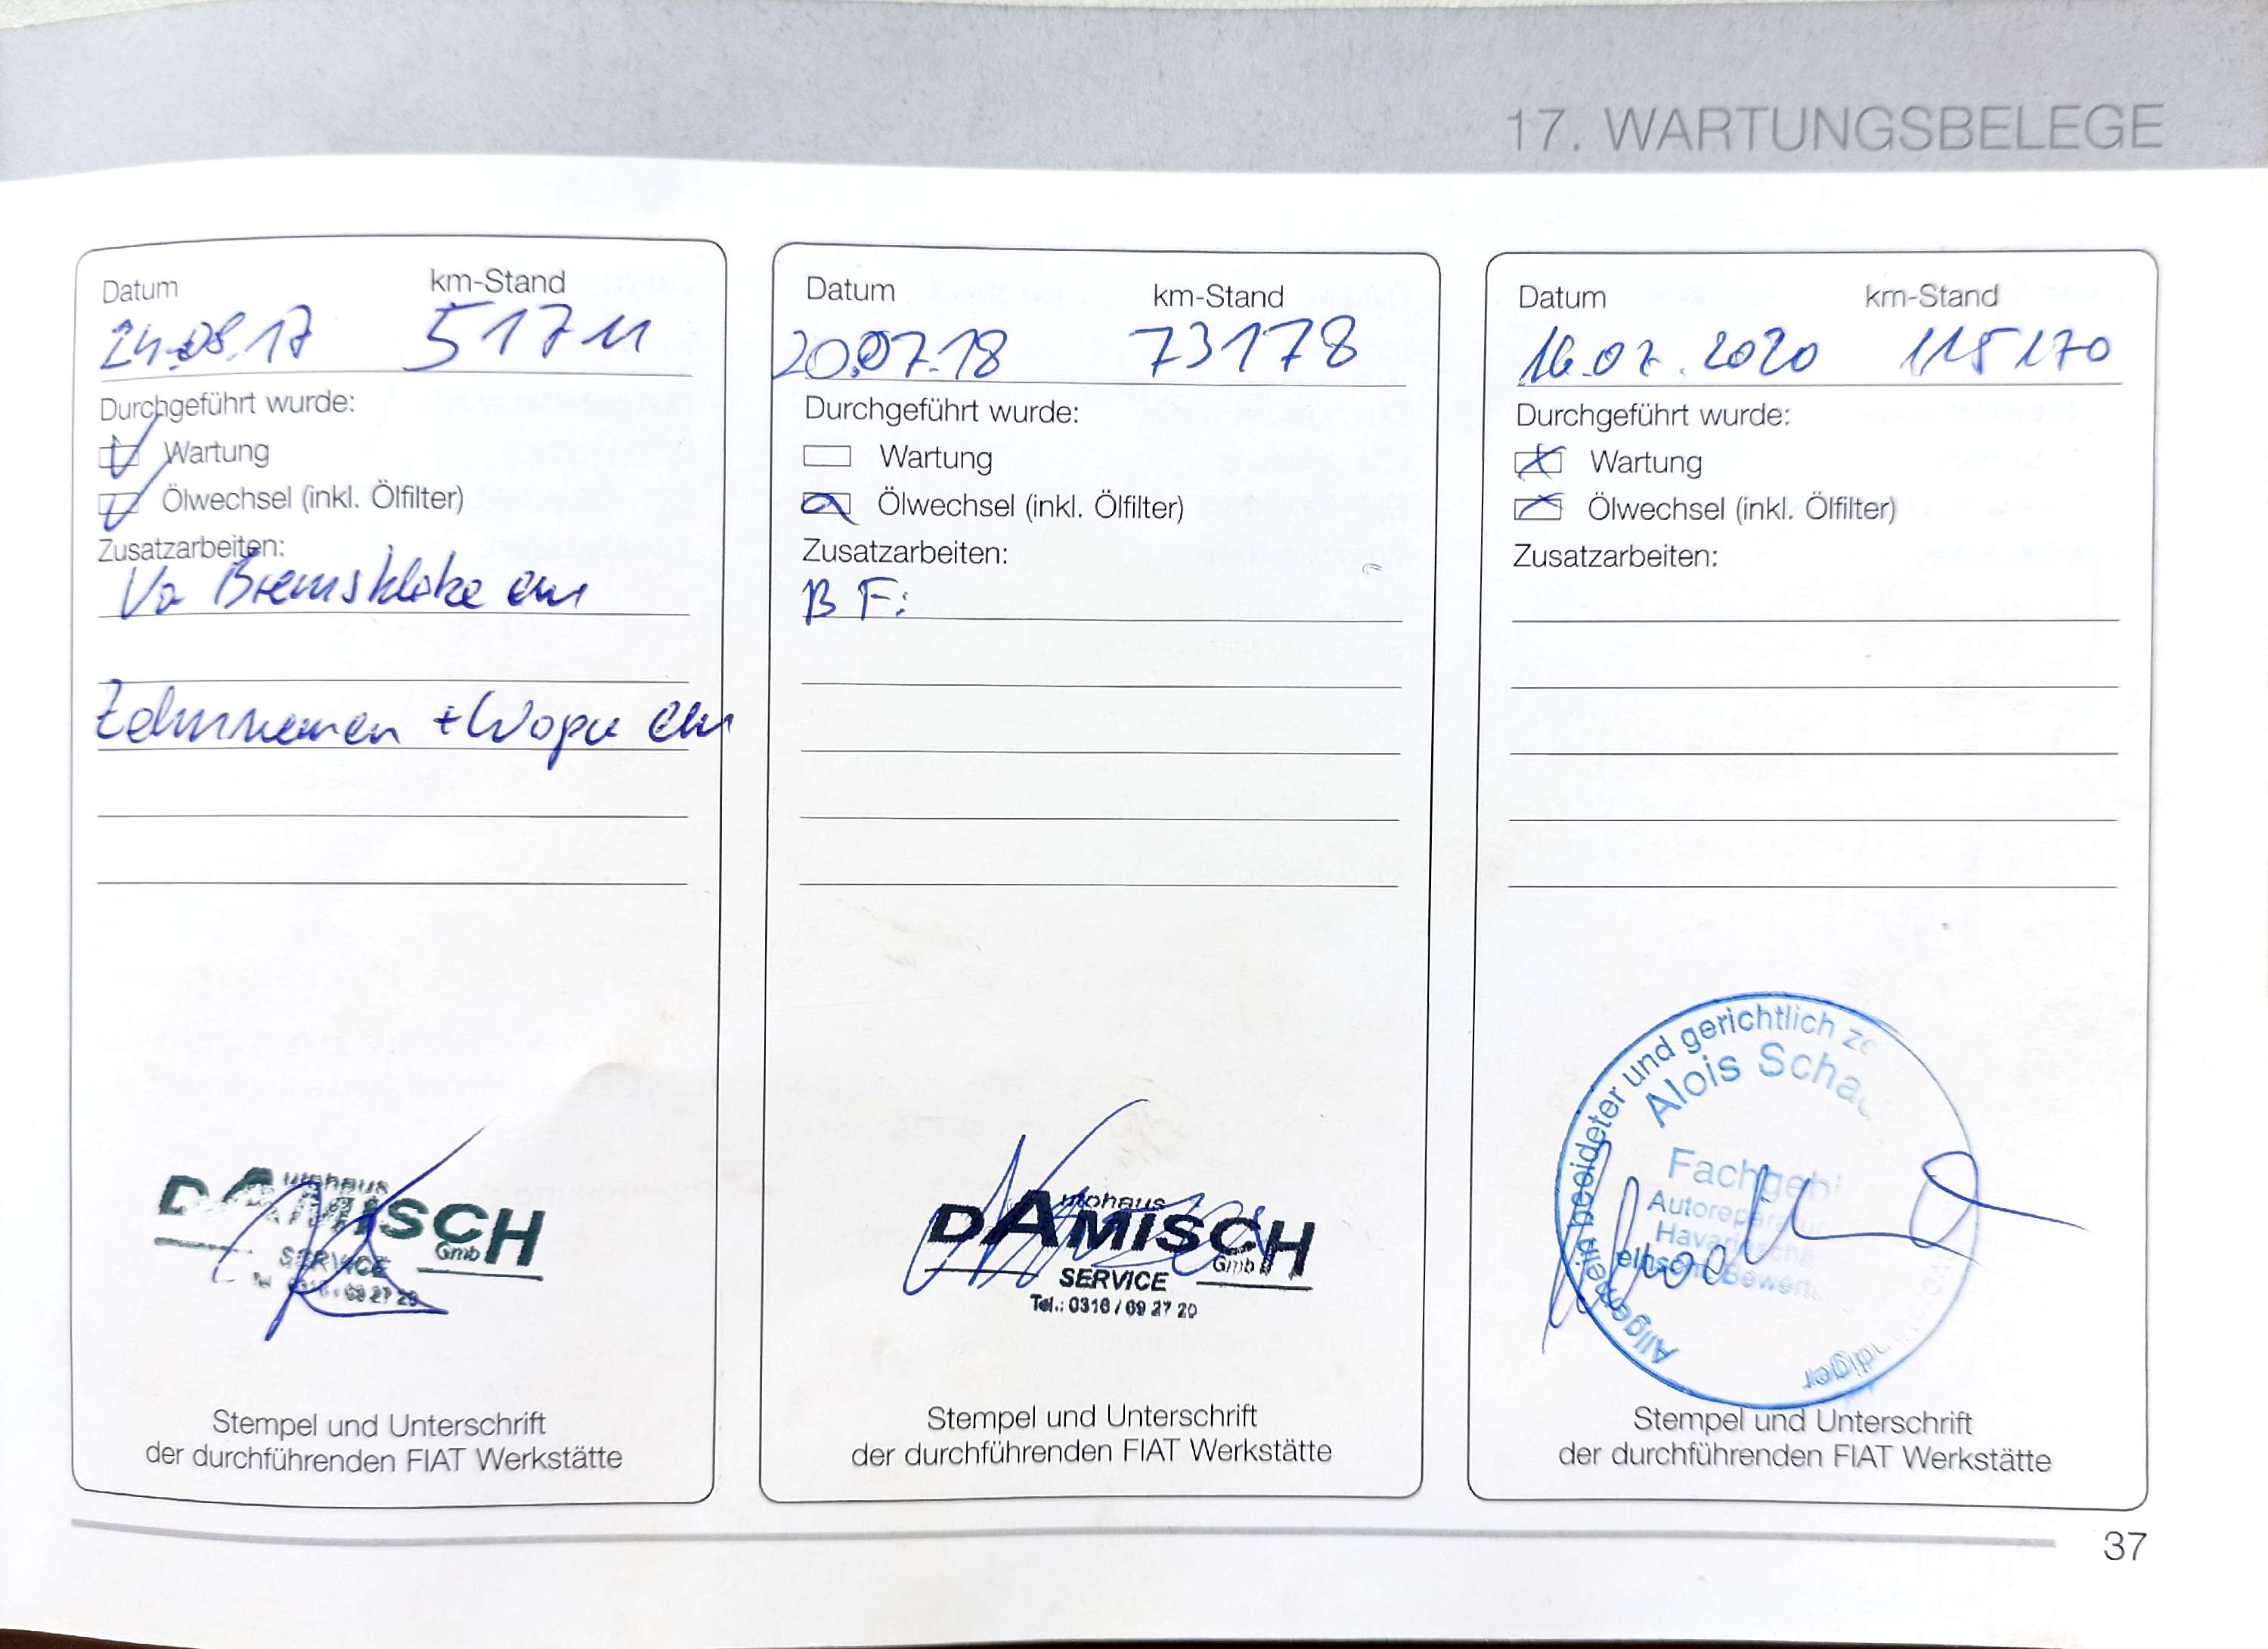 17. WARTUNGSBELEGE
Datum km-Stand
24.08.17 51711
Durchgeführt wurde:
Wartung
Ölwechsel (inkl. Ölfilter)
Zusatzarbeiten:
Va Bremsklötze ern
Zahnriemen + Wapu ern
Autohaus
DAMISCH
GmbH
SERVICE
Stempel und Unterschrift
der durchführenden FIAT Werkstätte
Datum km-Stand
20.07.18 73178
Durchgeführt wurde:
Wartung
Ölwechsel (inkl. Ölfilter)
Zusatzarbeiten:
BF:
Autohaus
DAMISCH
GmbH
SERVICE
Tel.: 0316 / 69 27 20
Stempel und Unterschrift
der durchführenden FIAT Werkstätte
Datum km-Stand
16.07.2020 115170
Durchgeführt wurde:
Wartung
Ölwechsel (inkl. Ölfilter)
Zusatzarbeiten:
Allgemein beeideter und gerichtlich
Alois
Stempel und Unterschrift
der durchführenden FIAT Werkstätte
37